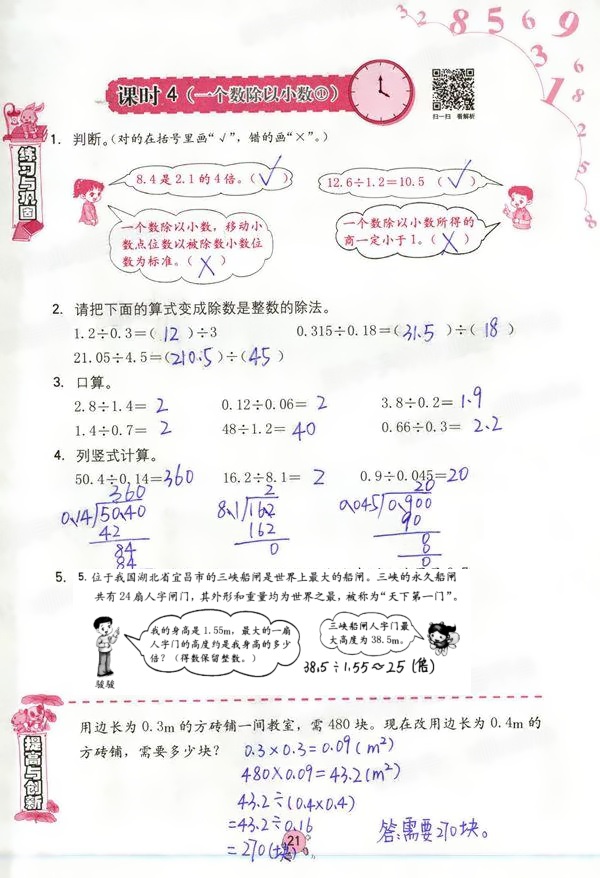 3 2 8 5 6 9
3 1 6 8 2 5 8
课时 4（一个数除以小数①）
扫一扫 看解析
练习与巩固
1. 判断。(对的在括号里画“√”，错的画“×”。)
8.4 是 2.1 的 4 倍。(√)
12.6÷1.2=10.5 (√)
一个数除以小数，移动小
数点位数以被除数小数位
数为标准。(×)
一个数除以小数所得的
商一定小于 1。(×)
2. 请把下面的算式变成除数是整数的除法。
1.2÷0.3=(12)÷3 0.315÷0.18=(31.5)÷(18)
21.05÷4.5=(210.5)÷(45)
3. 口算。
2.8÷1.4= 2 0.12÷0.06= 2 3.8÷0.2= 1.9
1.4÷0.7= 2 48÷1.2= 40 0.66÷0.3= 2.2
4. 列竖式计算。
50.4÷0.14=360 16.2÷8.1= 2 0.9÷0.045=20
360 2 20
0.14 50.40 8.1 162 0.045 0.900
42 162 90
84 0 0
84 0
0
5. 5. 位于我国湖北省宜昌市的三峡船闸是世界上最大的船闸。三峡的永久船闸
共有 24 扇人字闸门，其外形和重量均为世界之最，被称为“天下第一门”。
我的身高是 1.55m，最大的一扇
人字门的高度约是我身高的多少
倍？（得数保留整数。）
三峡船闸人字门最
大高度为 38.5m。
骏骏
38.5÷1.55≈25 (倍)
提高与创新
用边长为 0.3m 的方砖铺一间教室，需 480 块。现在改用边长为 0.4m 的
方砖铺，需要多少块？
0.3×0.3=0.09(m²)
480×0.09=43.2(m²)
43.2÷(0.4×0.4)
=43.2÷0.16
=270(块)
答:需要270块。
21